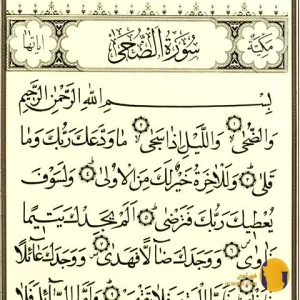 مكية سورة الضحى آياتها
بِسْمِ اللَّهِ الرَّحْمَٰنِ الرَّحِيمِ
وَالضُّحَىٰ ۝ وَاللَّيْلِ إِذَا سَجَىٰ ۝ مَا وَدَّعَكَ رَبُّكَ وَمَا
قَلَىٰ ۝ وَلَلْآخِرَةُ خَيْرٌ لَّكَ مِنَ الْأُولَىٰ ۝ وَلَسَوْفَ
يُعْطِيكَ رَبُّكَ فَتَرْضَىٰ ۝ أَلَمْ يَجِدْكَ يَتِيمًا
فَآوَىٰ ۝ وَوَجَدَكَ ضَالًّا فَهَدَىٰ ۝ وَوَجَدَكَ عَائِلًا